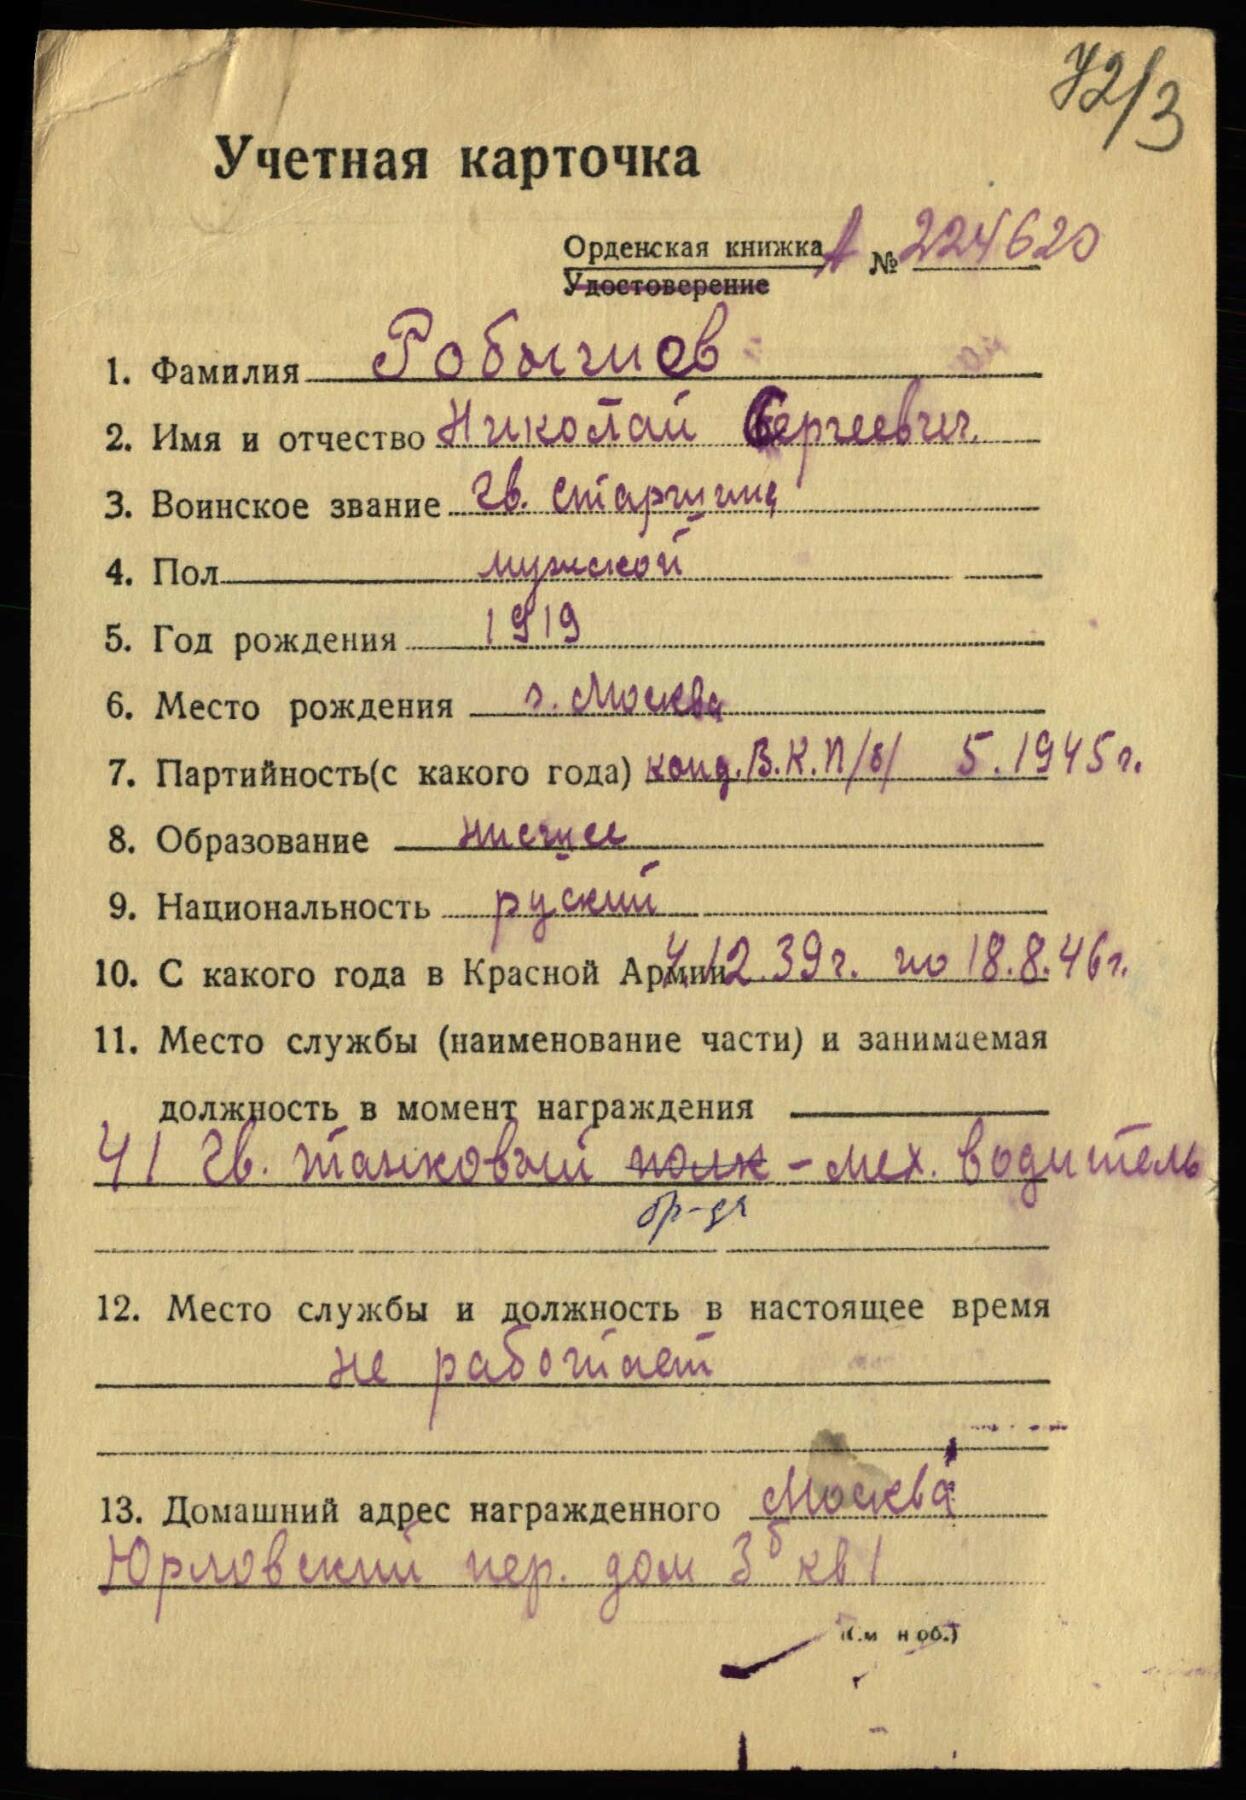 72/3
Учетная карточка
Орденская книжка А № 224620
Удостоверение
1. Фамилия
2. Имя и отчество Николай Сергеевич.
3. Воинское звание гв. старшина
4. Пол мужской
5. Год рождения 1919
6. Место рождения г. Москва
7. Партийность (с какого года) канд. В.К.П/б/ 5.1945 г.
8. Образование нисшее
9. Национальность руский
10. С какого года в Красной Армии 4.12.39 г. по 18.8.46 г.
11. Место службы (наименование части) и занимаемая
должность в момент награждения
41 гв. танковый полк - мех. водитель
бр-да
12. Место службы и должность в настоящее время
не работает
13. Домашний адрес награжденного Москва
Юрловский пер. дом 3б кв 1
(См на об.)